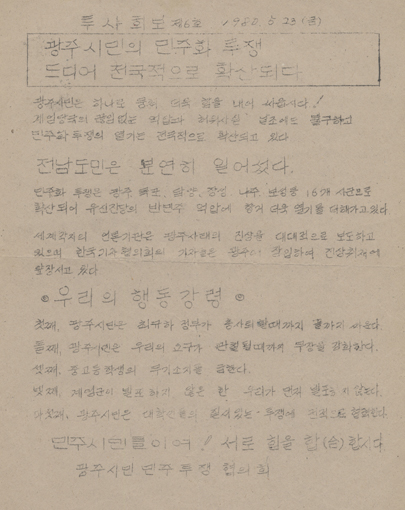 투사회보 제6호 1980. 5. 23 (금)
광주시민의 민주화 투쟁
드디어 전국적으로 확산되다.
광주시민은 하나로 뭉쳐 더욱 힘을 내어 싸웁시다!
계엄당국의 끊임없는 억압과 허위사실 날조에도 불구하고
민주화 투쟁의 열기는 전국적으로 확산되고 있다
전남도민은 분연히 일어섰다.
민주화 투쟁은 광주 목포, 담양, 장성, 나주, 보성등 16개 시군으로
확산되어 유신잔당의 비민주 억압에 항거 더욱 열기를 더해가고 있다
세계각지의 언론기관은 광주사태의 진상을 대대적으로 보도하고
있으며 한국기자협의회의 기자들은 광주에 잠입하여 진상취재에
앞장서고 있다
◎ 우리의 행동강령 ◎
첫째, 광주시민은 최규하 정부가 총사퇴할 때까지 끝까지 싸운다.
둘째, 광주시민은 우리의 요구가 관철될 때까지 무장을 강화한다.
셋째, 중고등학생의 무기소지를 금한다.
넷째, 계엄군이 발포하지 않는 한 우리가 먼저 발포하지 않는다.
다섯째, 광주시민은 대학인들의 투쟁에 협력한다.
민주시민들이여! 서로 힘을 합(合)합시다.
광주시민 민주투쟁 협의회